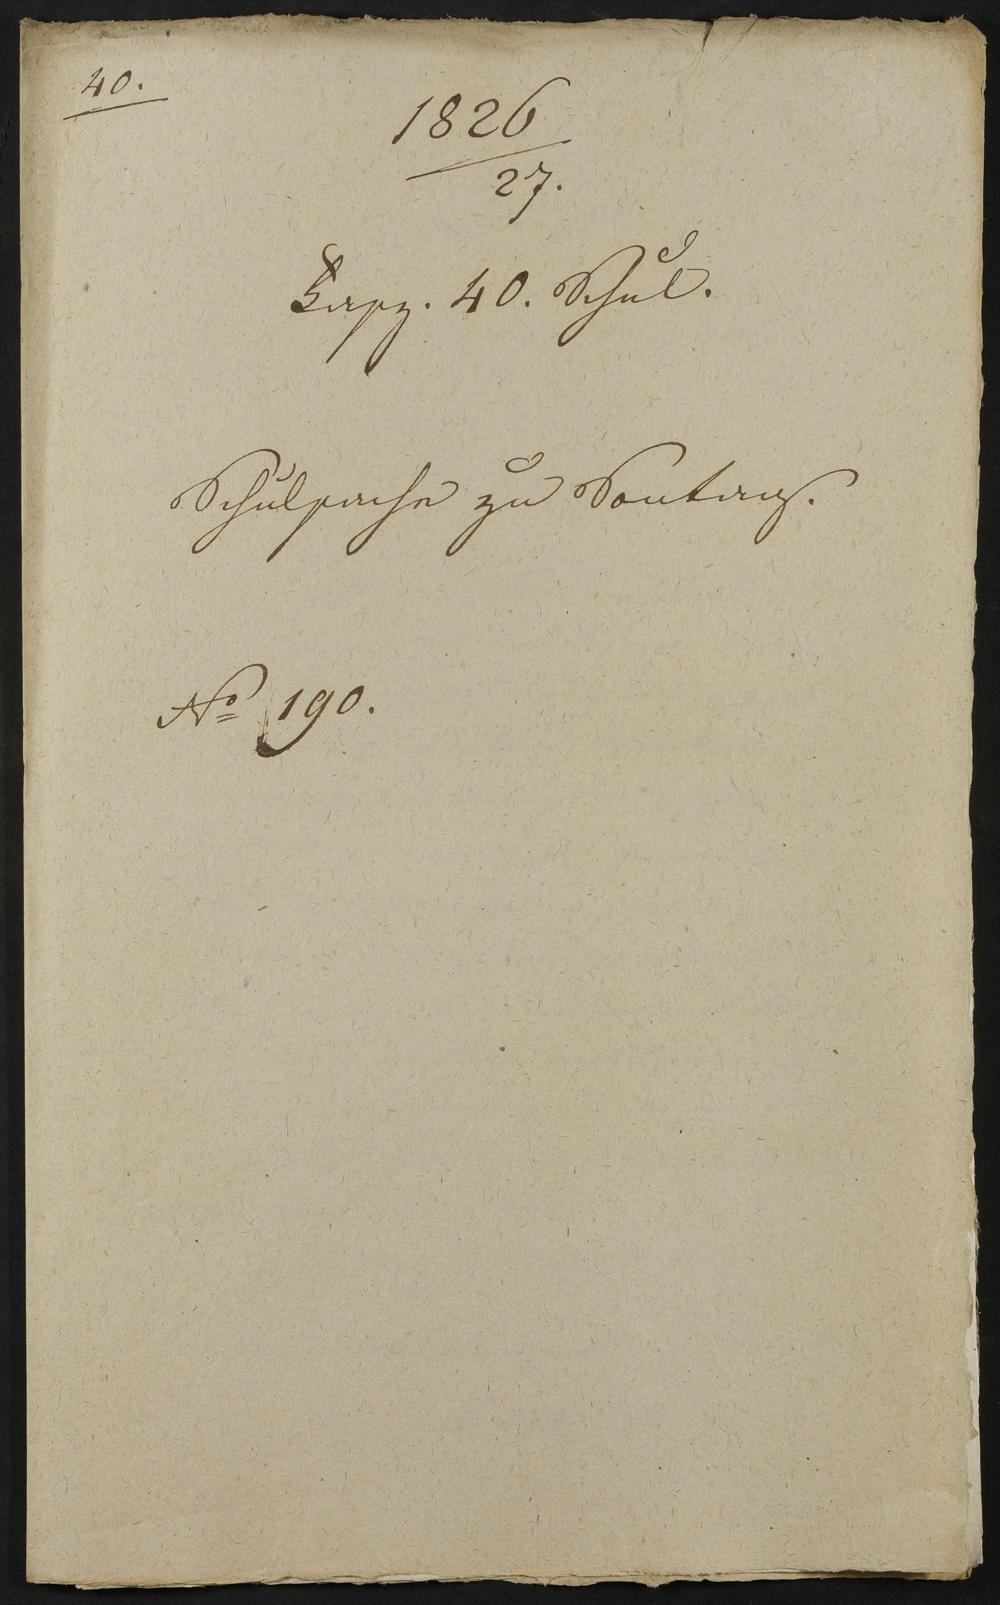 40.
1826
27.
Kapz. 40. Schul.
Schulsache zu Sontag.
No 190.